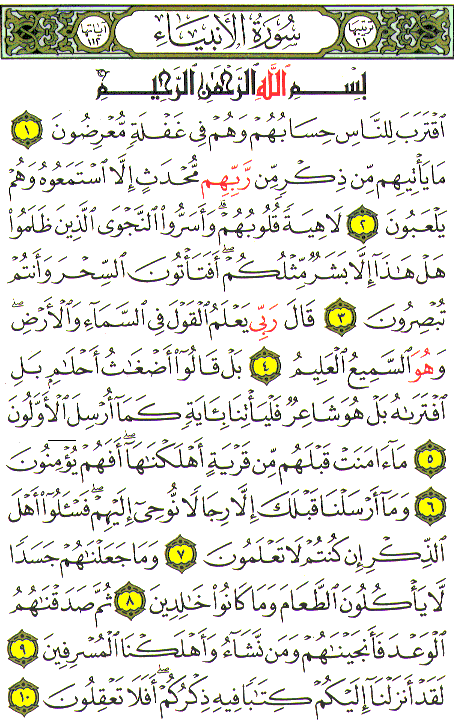 ترتيبها ٢١ سُورَةُ الأَنبِيَاءِ آياتها ١١٢
بِسْمِ اللَّهِ الرَّحْمَٰنِ الرَّحِيمِ
اقْتَرَبَ لِلنَّاسِ حِسَابُهُمْ وَهُمْ فِي غَفْلَةٍ مُّعْرِضُونَ ١
مَا يَأْتِيهِم مِّن ذِكْرٍ مِّن رَّبِّهِم مُّحْدَثٍ إِلَّا اسْتَمَعُوهُ وَهُمْ
يَلْعَبُونَ ٢ لَاهِيَةً قُلُوبُهُمْ ۗ وَأَسَرُّوا النَّجْوَى الَّذِينَ ظَلَمُوا
هَلْ هَٰذَا إِلَّا بَشَرٌ مِّثْلُكُمْ ۖ أَفَتَأْتُونَ السِّحْرَ وَأَنتُمْ
تُبْصِرُونَ ٣ قَالَ رَبِّي يَعْلَمُ الْقَوْلَ فِي السَّمَاءِ وَالْأَرْضِ ۖ
وَهُوَ السَّمِيعُ الْعَلِيمُ ٤ بَلْ قَالُوا أَضْغَاثُ أَحْلَامٍ بَلِ
افْتَرَاهُ بَلْ هُوَ شَاعِرٌ فَلْيَأْتِنَا بِآيَةٍ كَمَا أُرْسِلَ الْأَوَّلُونَ
٥ مَا آمَنَتْ قَبْلَهُم مِّن قَرْيَةٍ أَهْلَكْنَاهَا ۖ أَفَهُمْ يُؤْمِنُونَ
٦ وَمَا أَرْسَلْنَا قَبْلَكَ إِلَّا رِجَالًا نُّوحِي إِلَيْهِمْ ۖ فَسْـَٔلُوا أَهْلَ
الذِّكْرِ إِن كُنتُمْ لَا تَعْلَمُونَ ٧ وَمَا جَعَلْنَاهُمْ جَسَدًا
لَّا يَأْكُلُونَ الطَّعَامَ وَمَا كَانُوا خَالِدِينَ ٨ ثُمَّ صَدَقْنَاهُمُ
الْوَعْدَ فَأَنجَيْنَاهُمْ وَمَن نَّشَاءُ وَأَهْلَكْنَا الْمُسْرِفِينَ ٩
لَقَدْ أَنزَلْنَا إِلَيْكُمْ كِتَابًا فِيهِ ذِكْرُكُمْ ۖ أَفَلَا تَعْقِلُونَ ١٠